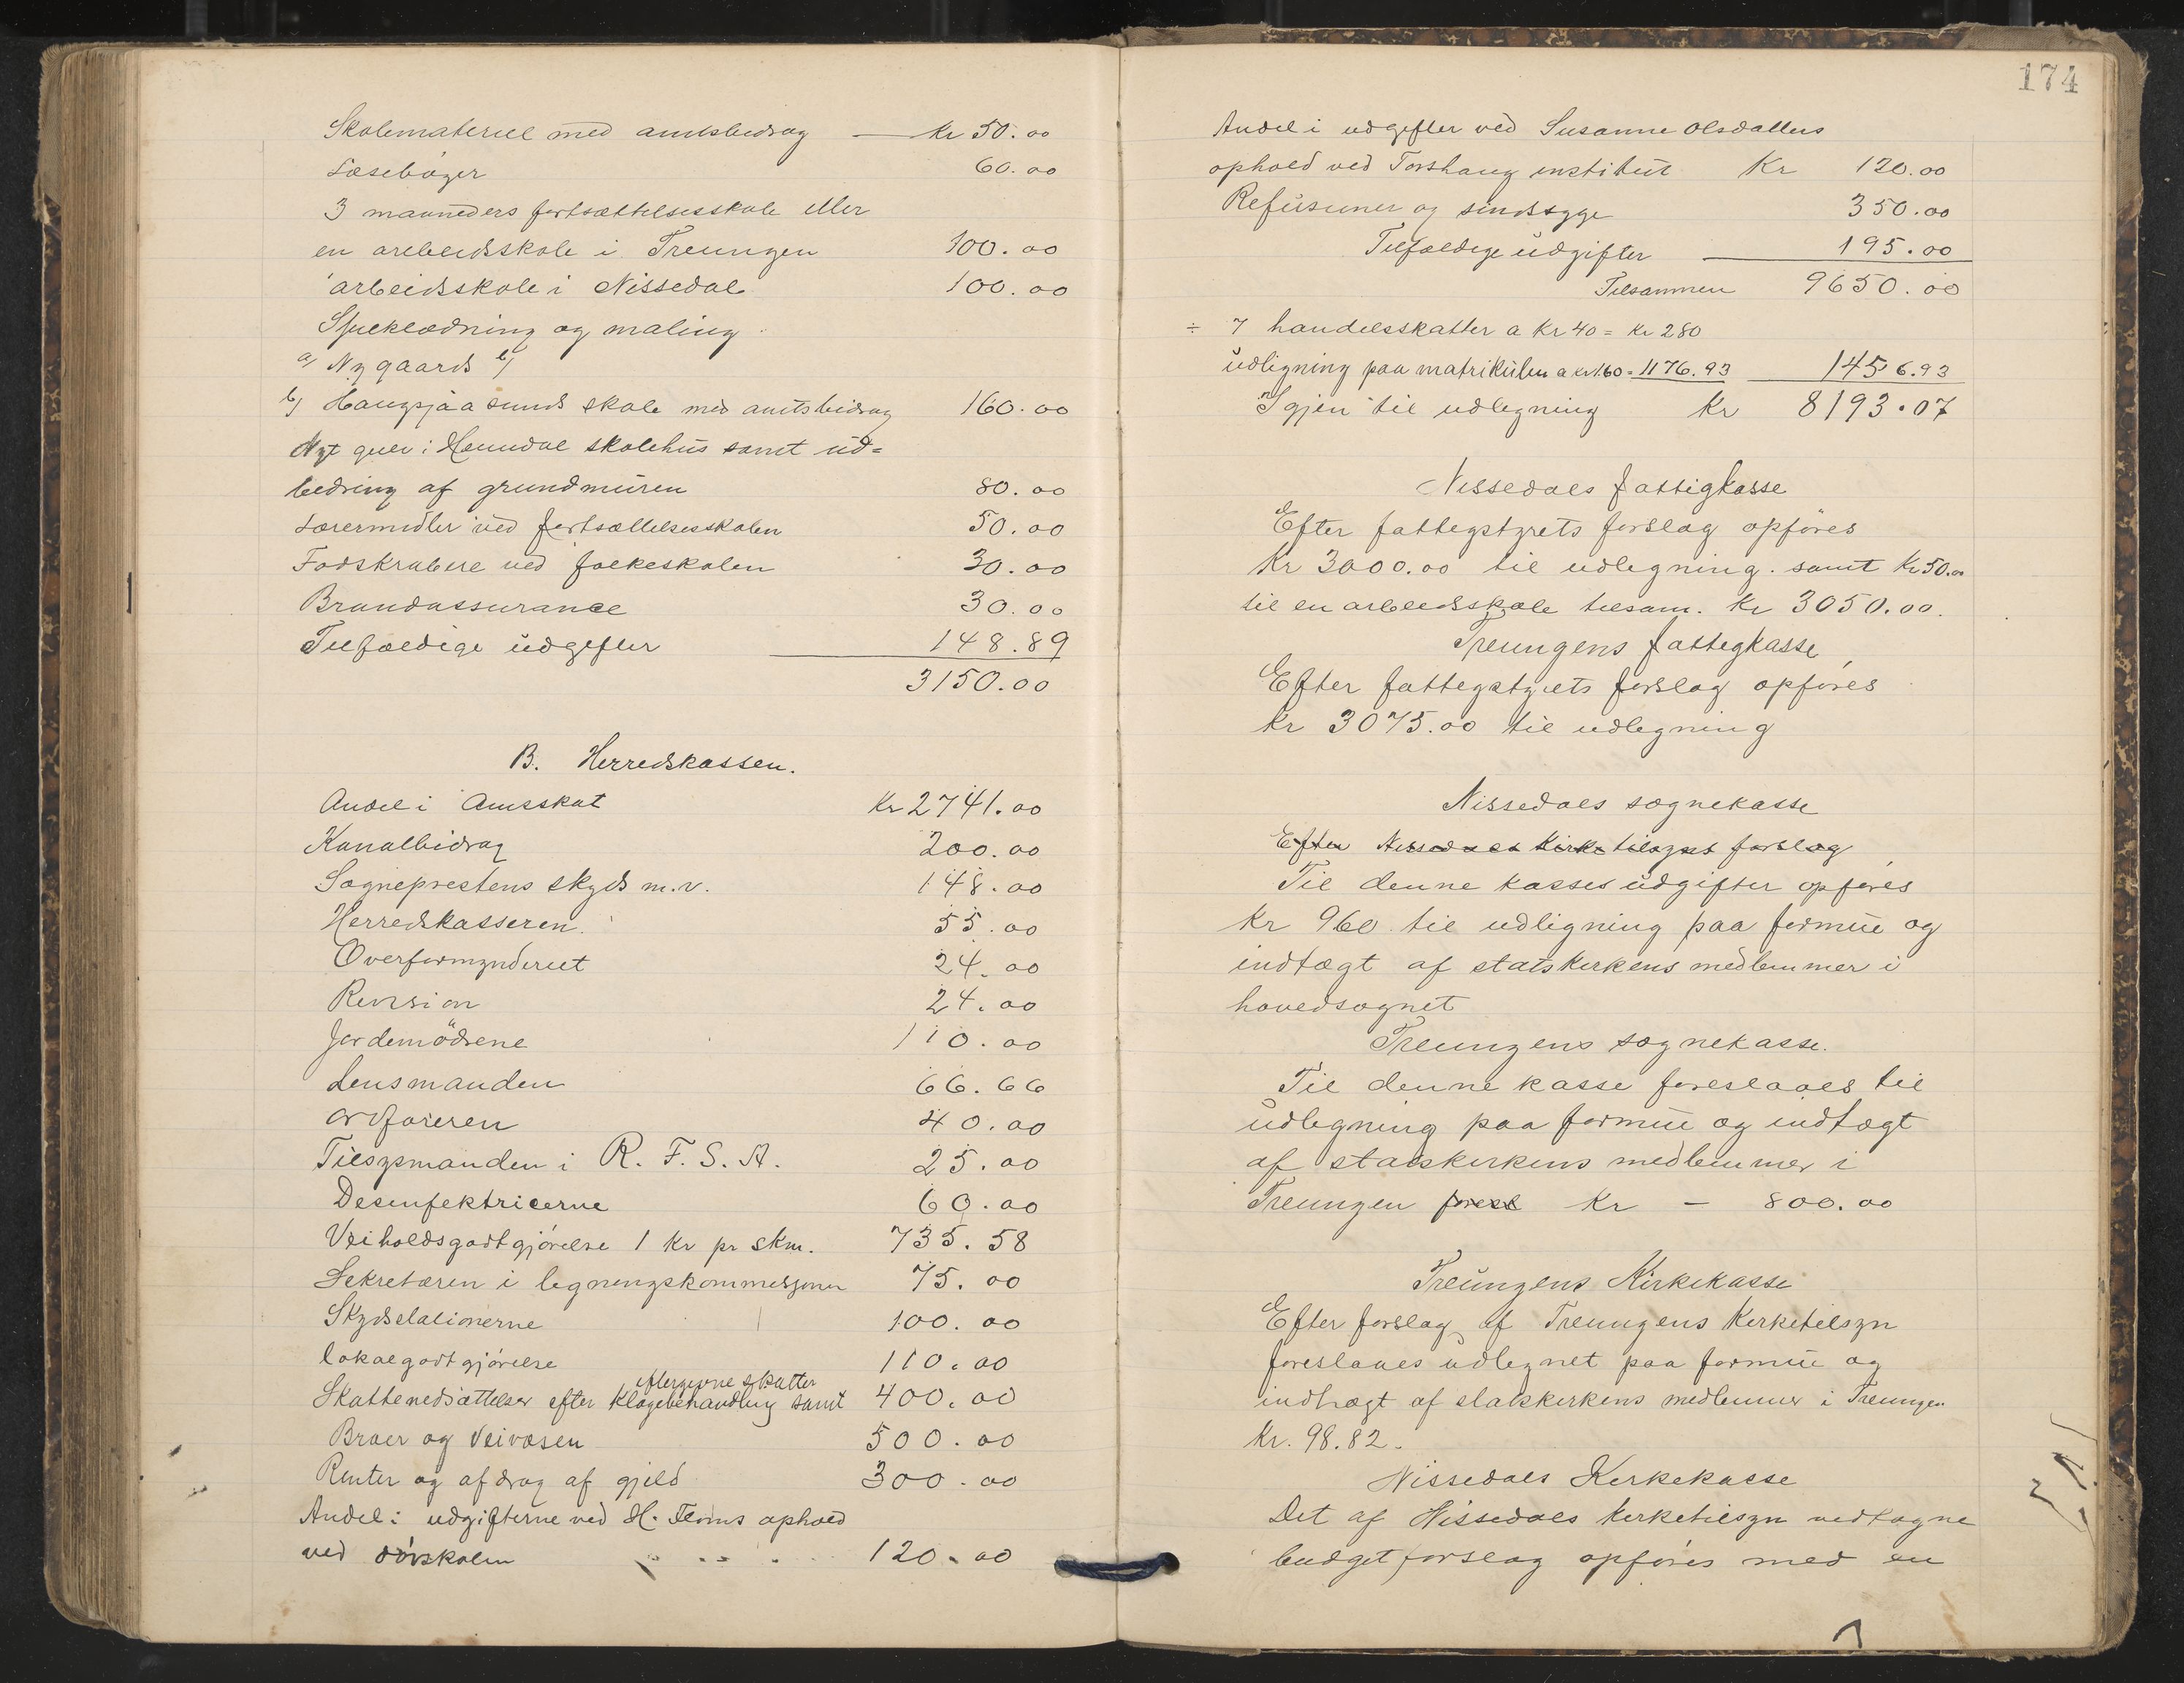 Skolemateriel med amtsbidrag — Kr 50.00
Læsebøger 60.00
3 maaneders fortsættelsesskole eller
en arebeidsskole i Treungen 100.00
arbeidsskole i Nissedal 100.00
Spækledning og maling
a) Nygaards b)
b) Haugsjaasunds skole med amtsbidrag 160.00
Nyt gulv i Heimdal skolehus samt ud=
bedring af grundmuren 80.00
Læremidler ved fortsættelsesskolen 50.00
Fodskrabere ved folkeskolen 30.00
Brandassurance 30.00
Tilfældige udgifter 148.89
3150.00
B. Herredskassen.
Andel i Amsskat Kr 2741.00
Kanalbidrag 200.00
Sogneprestens skyds m.v. 148.00
Herredskasseren. 55.00
Overformynderiet 24.00
Revision 24.00
Jordemødrene 110.00
Lensmanden 66.66
Ordføreren 40.00
Tilsysmanden i R. F. S. A. 25.00
Desinfektricerne 60.00
Veiholdsgodtgjørelse 1 Kr pr skm. 735.58
Sekretæren i ligningskommissjonen 75.00
Skydsstationerne 100.00
lokalgodtgjørelse 110.00
eftergivne skatter
Skattenedsættelser efter klagebehandling samt 400.00
Broer og Veivæsen 500.00
Renter og afdrag af gjeld 300.00
Andel i udgifterne ved H. ophold
ved døvskolen 120.00
174
Andel i udgifter ved Susanne Olsdatters
ophold ved Torshaug institut Kr 120.00
Refusioner og sindssyge 350.00
Tilfældige udgifter 195.00
Tilsammen 9650.00
÷ 7 handelsskatter a Kr 40 = Kr 280
udligning paa matrikulen a kr 1.60 = 1176.93 1456.93
Igjen til udlegning Kr 8193.07
Nissedals fattigkasse
Efter fattegstyrets forslag opføres
Kr 3000.00 til udlegning. samt Kr 50.00
til en arbeidsskole tilsam. Kr 3050.00.
Treungens fattegkasse
Efter fattegstyrets forslag opføres
Kr 3075.00 til udlegning
Nissedals sognekasse
Efter Nissedals kirketilsyns forslag
Til denne kasses udgifter opføres
Kr 960 til udligning paa formue og
indtægt af statskirkens medlemmer i
hovedsognet
Treungens sognekasse.
Til denne kasse foreslaaes til
udlegning paa formue og indtægt
af statskirkens medlemmer i
Treungen forest Kr — 800.00
Treungens Kirkekasse
Efter forslag af Treungens Kerketilsyn
foreslaaes udlegnet paa formue og
indtægt af statskerkens medlemmer i Treungen
Kr. 98.82.
Nissedals Kerkekasse
Det af Nissedals kerketilsyn vedtagne
budgetforslag opføres med en